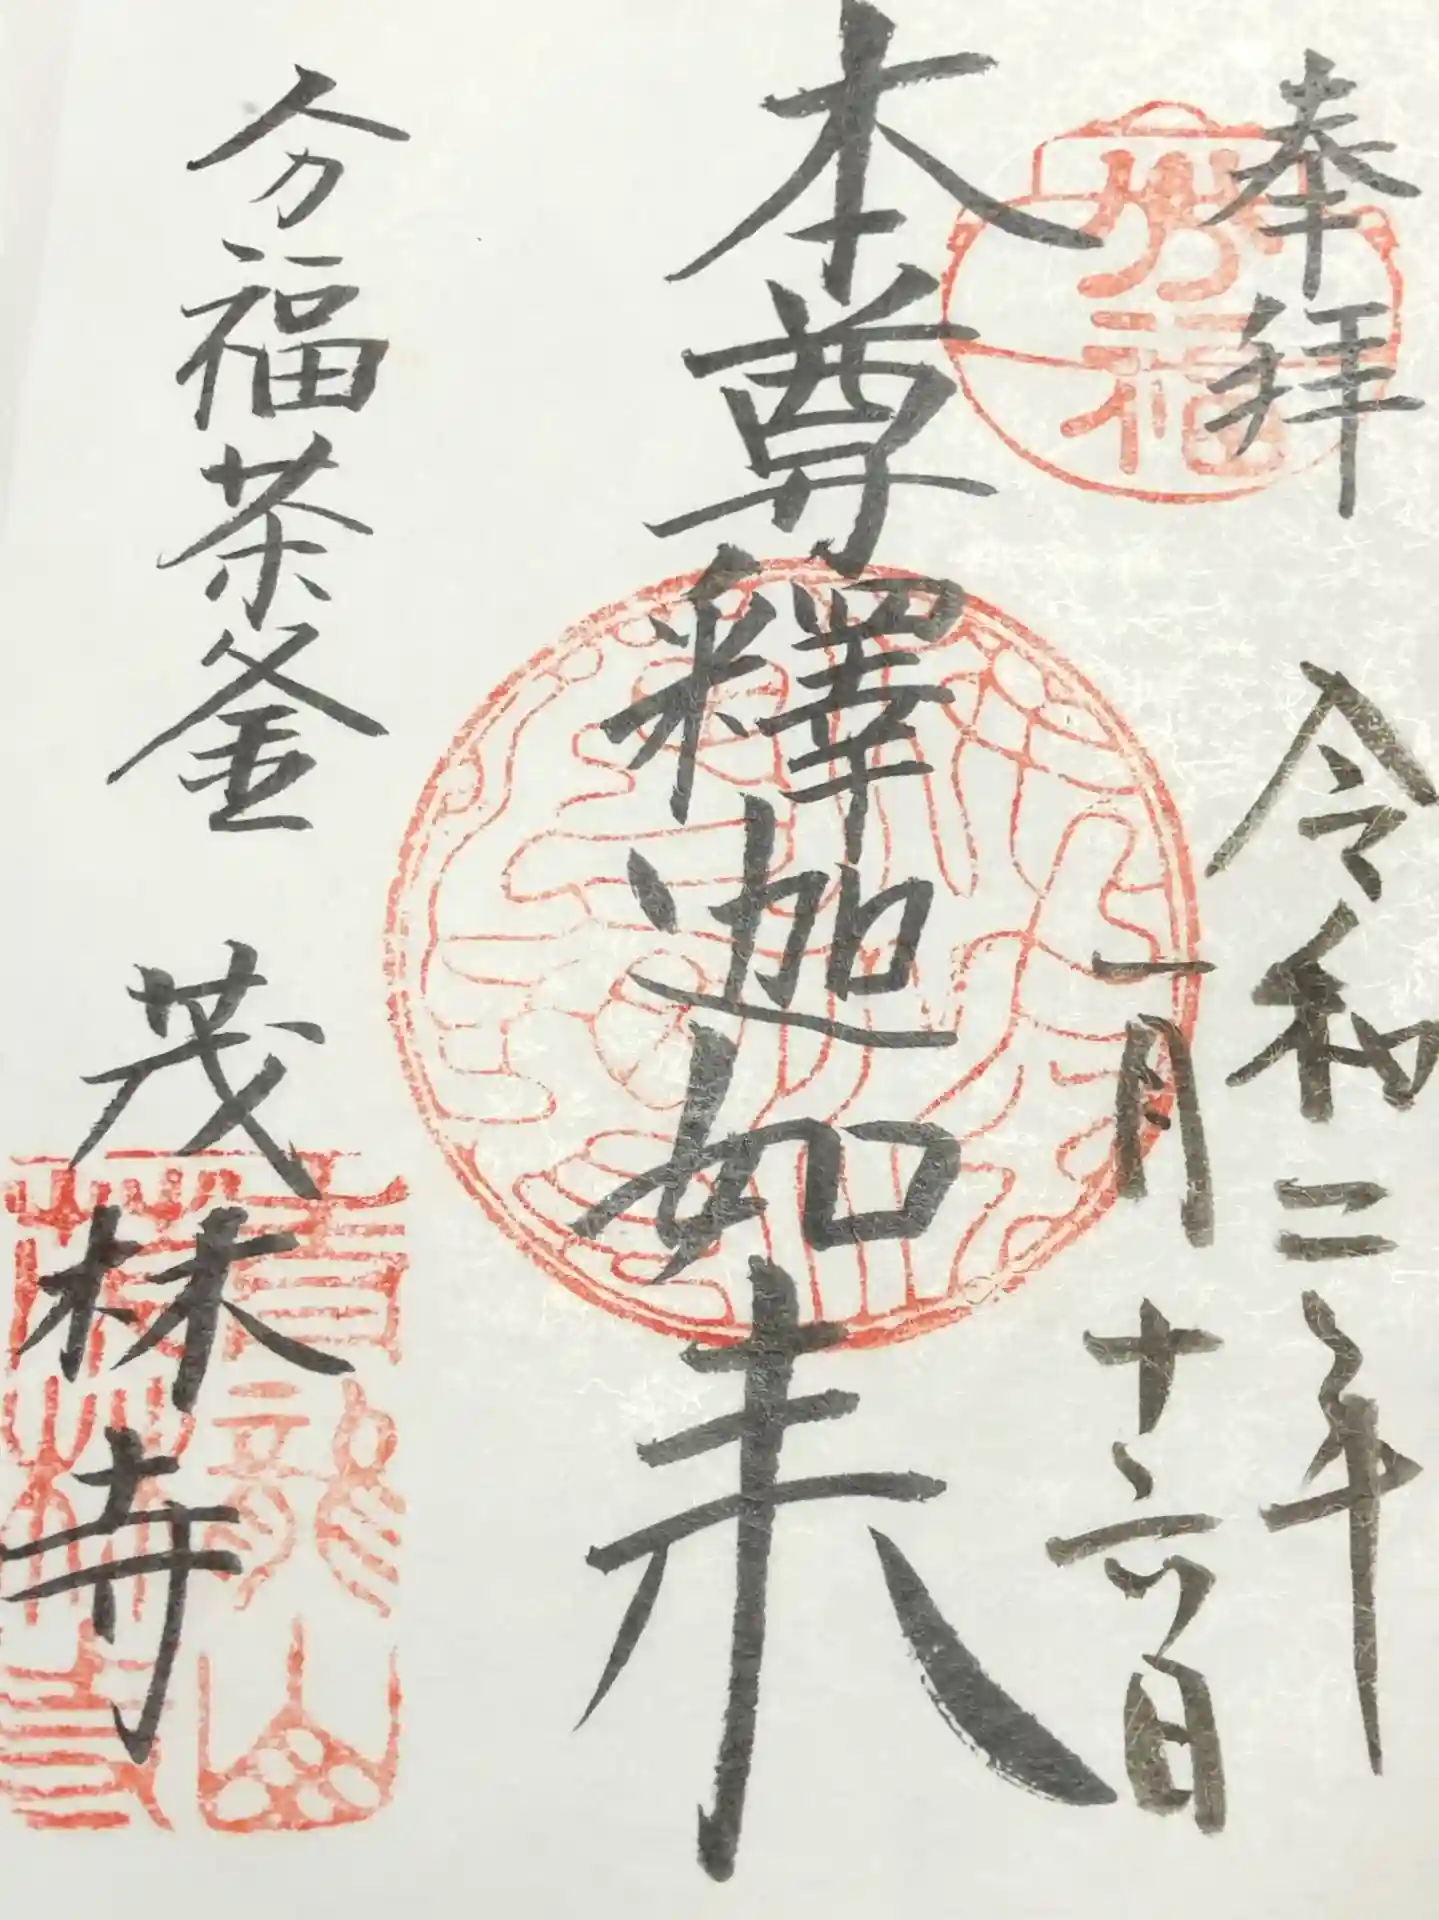 奉拜
令和二年
一月十六日
本尊釋迦如来
分福茶釜 茂林寺
分福
青龍山
茂林寺